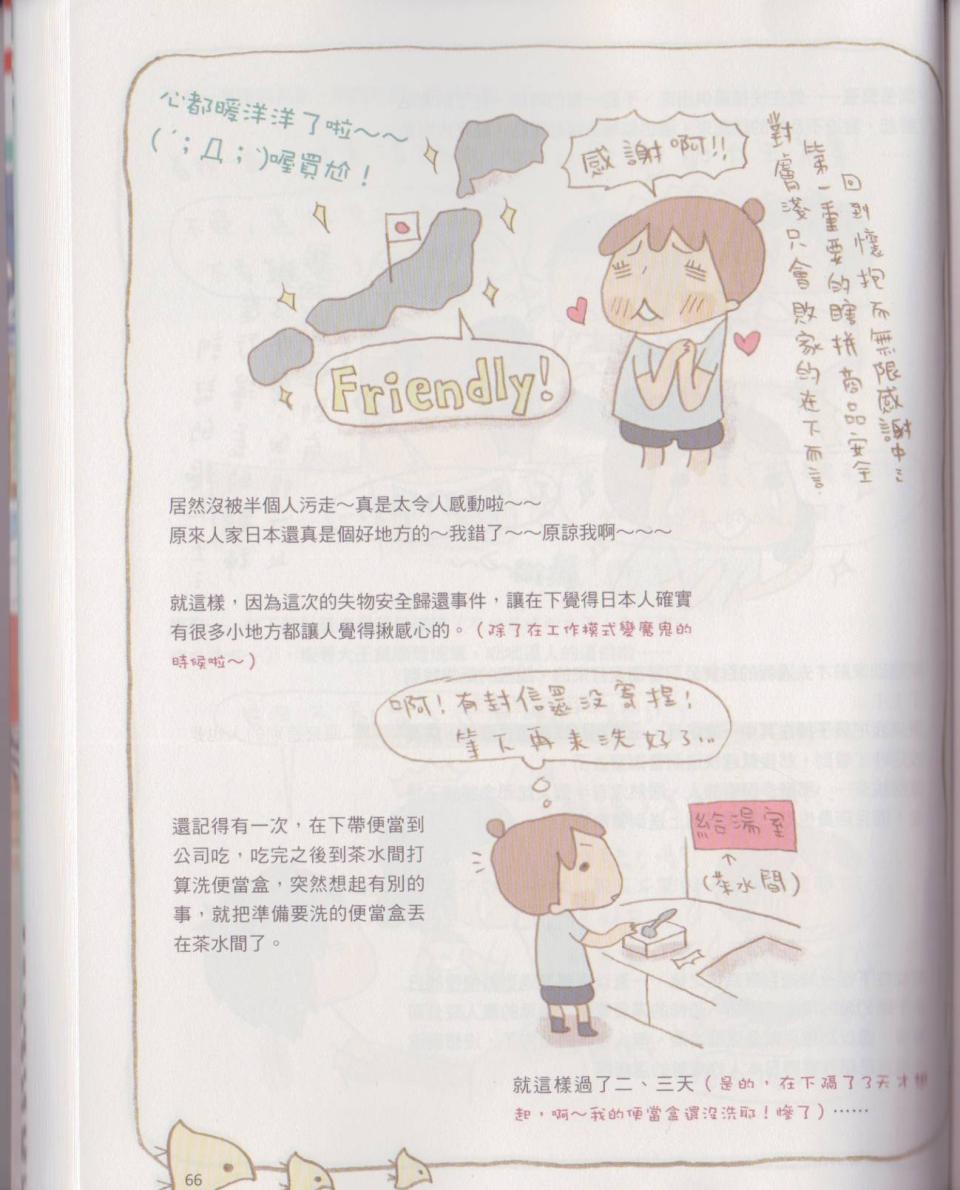 心都暖洋洋了啦～～
(´；Д；`)喔買尬！
感謝啊!!
對膚淺只會敗家的在下而言
第一重要的瞎拼商品安全
回到懷抱而無限感謝中…
Friendly!
居然沒被半個人污走～真是太令人感動啦～～
原來人家日本還真是個好地方的～我錯了～～原諒我啊～～～
就這樣，因為這次的失物安全歸還事件，讓在下覺得日本人確實
有很多小地方都讓人覺得揪感心的。（除了在工作模式變魔鬼的
時候啦～）
啊！有封信還沒寄捏！
等下再來洗好了…
還記得有一次，在下帶便當到
公司吃，吃完之後到茶水間打
算洗便當盒，突然想起有別的
事，就把準備要洗的便當盒丟
在茶水間了。
給湯室
↑
(茶水間)
就這樣過了二、三天（是的，在下隔了3天才想
起，啊～我的便當盒還沒洗耶！慘了）……
66